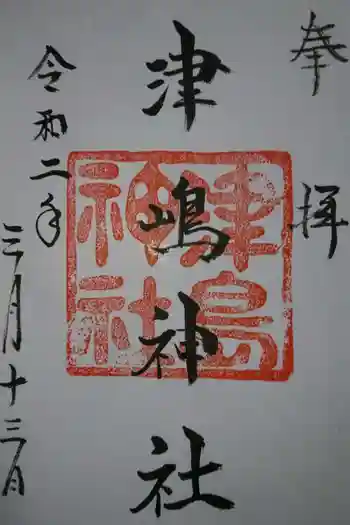 奉拝
津嶋神社
津島神社
令和二年三月十三日